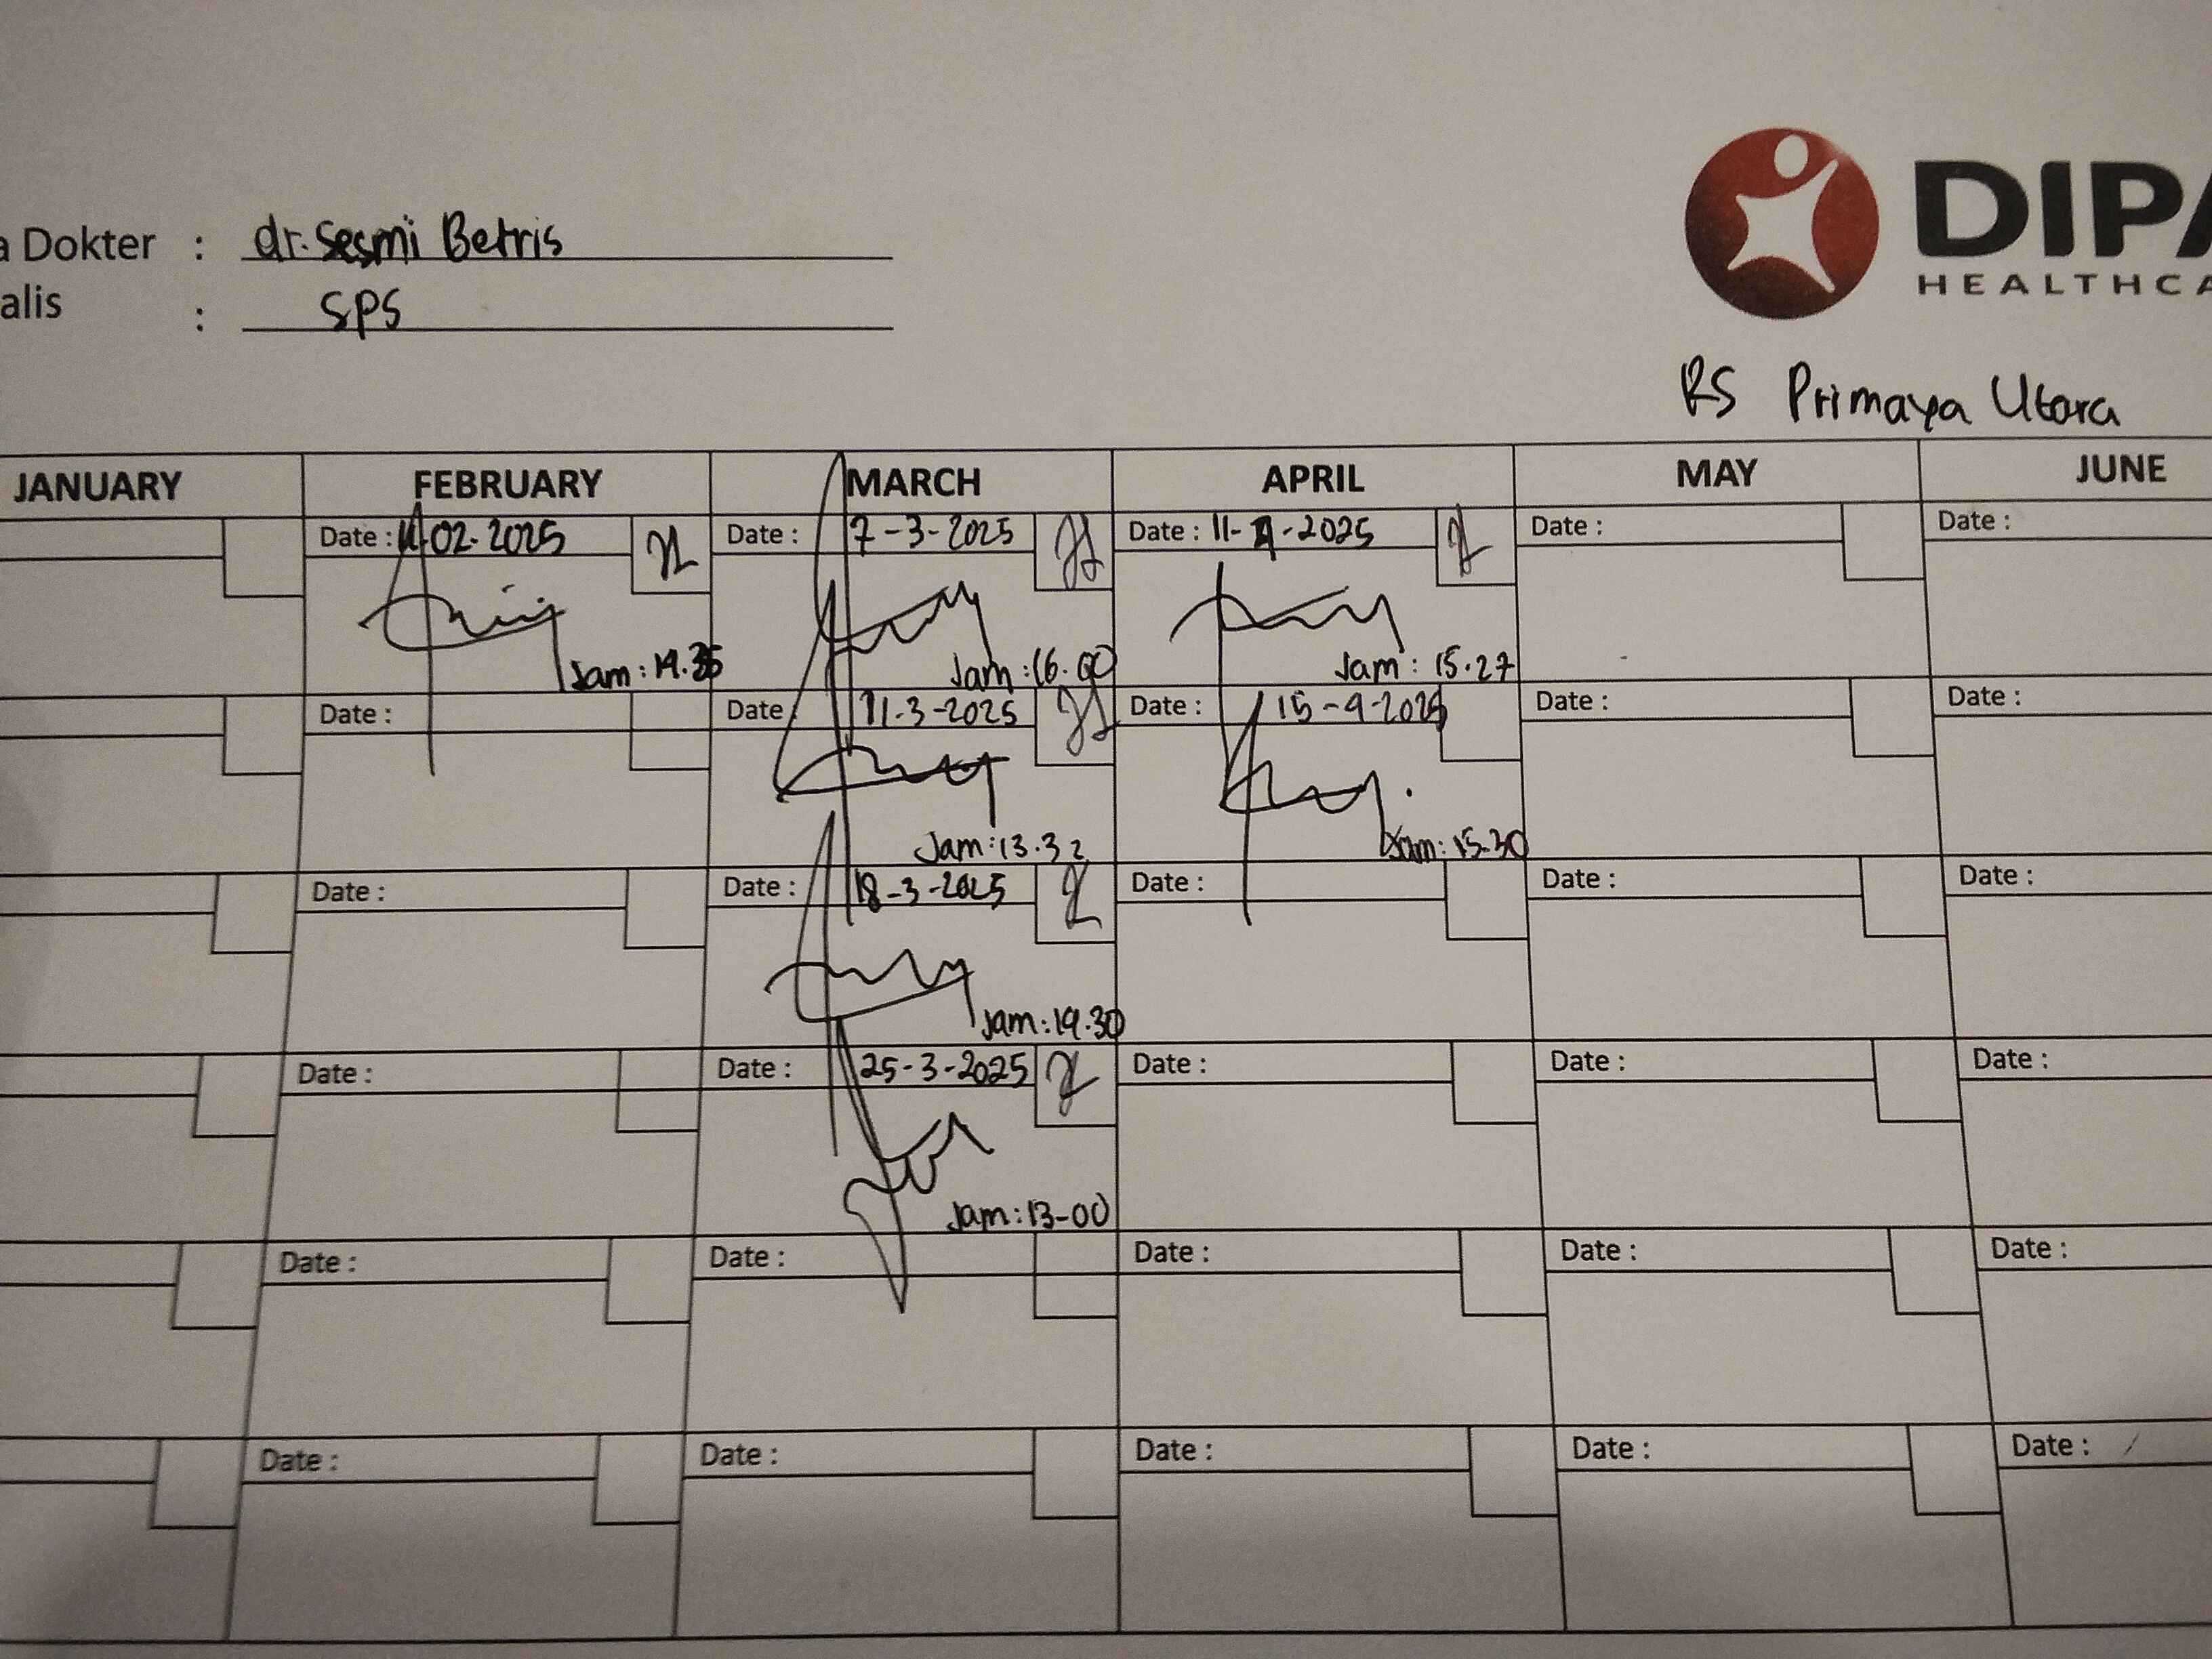 a Dokter : dr. Sesmi Betris
alis : SPS
DIPA
HEALTHCA
RS Primaya Utara
JANUARY FEBRUARY MARCH APRIL MAY JUNE
Date : 11-02-2025 Date : 7-3-2025 Date : 11-4-2025 Date : Date :
Jam : 19.35 Jam : 16.00 Jam : 15.27
Date : Date 11-3-2025 Date : 15-4-2025 Date : Date :
Jam : 13.32 Jam : 15.30
Date : Date : 18-3-2025 Date : Date : Date :
Jam : 19.30
Date : Date : 25-3-2025 Date : Date : Date :
Jam : 13-00
Date : Date : Date : Date : Date :
Date : Date : Date : Date : Date :